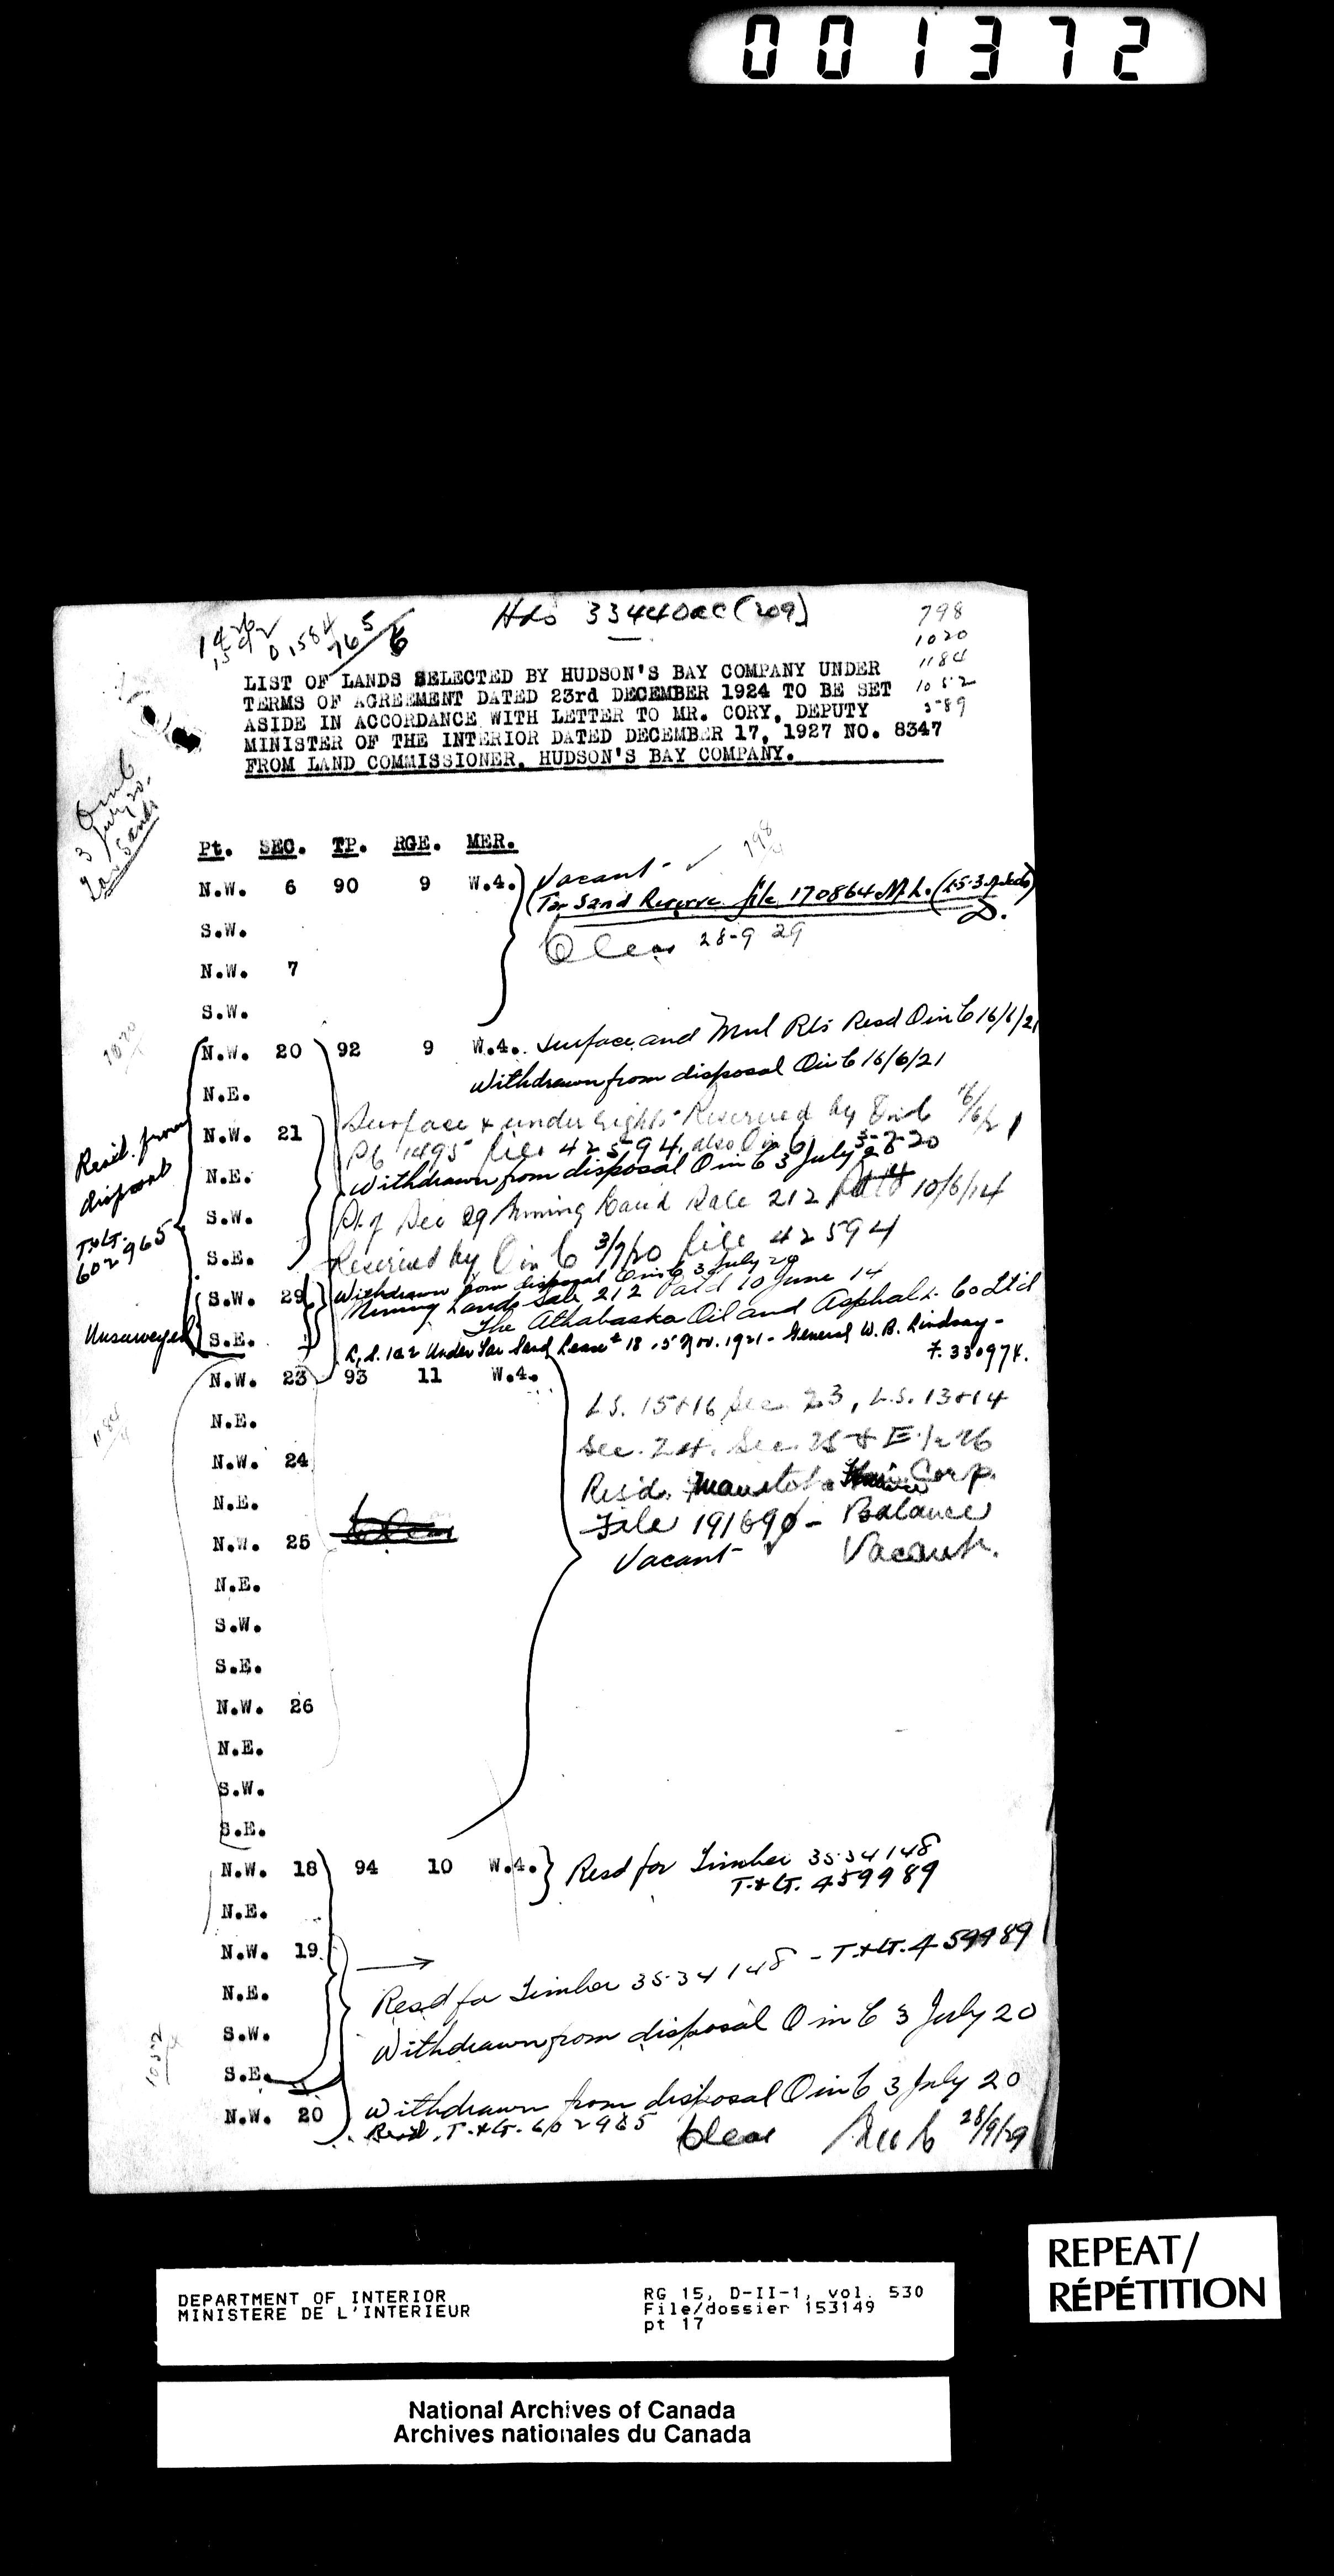 001372
Hds 33440ac (209)
798
1020
1184
1052
589
LIST OF LANDS SELECTED BY HUDSON'S BAY COMPANY UNDER
TERMS OF AGREEMENT DATED 23rd DECEMBER 1924 TO BE SET
ASIDE IN ACCORDANCE WITH LETTER TO MR. CORY, DEPUTY
MINISTER OF THE INTERIOR DATED DECEMBER 17, 1927 NO. 8347
FROM LAND COMMISSIONER, HUDSON'S BAY COMPANY.
O in C
3 July 20.
Tar Sands
Pt. SEC. TP. RGE. MER.
798
N.W. 6 90 9 W.4. Vacant
(Tar Sand Reserve file 170864 M.L.
S.W.
Clear 28-9 29
N.W. 7
S.W.
1020
N.W. 20 92 9 W.4. Surface and Mnl Rts Resd O in C 16/6/21
Withdrawn from disposal O in C 16/6/21
N.E.
Surface & under rights Reserved by O in C 16/6/21
N.W. 21
PC 1495 file 42594, also O in C 3-7-20
Withdrawn from disposal O in C 3 July 20
N.E.
Pt of Sec 29 Mining Land Sale 212 10/6/14
S.W.
Reserved by O in C 3/7/20 file 42594
S.E.
Resd. from
disposal
T.&G.
602965
Withdrawn from disposal O in C 3 July 20
S.W. 29
Mining Lands Sale 212 Patd 10 June 14
The Athabaska Oil and Asphalt Co Ltd
Unsurveyed
S.E.
L.S. 1&2 Under Tar Sand Lease # 18. 5 Nov. 1921 - General W. B. Lindsay -
F. 33097
N.W. 23 93 11 W.4.
LS. 15+16 Sec. 23, L.S. 13+14
N.E.
1184
Sec. 24. Sec. 25 & E.1/2 26
N.W. 24
Resd. Corp.
N.E.
File 191690 - Balance
N.W. 25
Vacant Vacant.
N.E.
S.W.
S.E.
N.W. 26
N.E.
S.W.
S.E.
N.W. 18 94 10 W.4. Resd for Timber 35.34148
T.&G. 459989
N.E.
N.W. 19
Resd for Timber 35.34148 - T.&G. 459989
N.E.
Withdrawn from disposal O in C 3 July 20
S.W.
1052
S.E.
Withdrawn from disposal O in C 3 July 20
N.W. 20
Resd. T.&G. 602965 Clear 28/9/29
REPEAT/
RÉPÉTITION
DEPARTMENT OF INTERIOR
MINISTERE DE L'INTERIEUR
RG 15, D-II-1, vol. 530
File/dossier 153149
pt 17
National Archives of Canada
Archives nationales du Canada